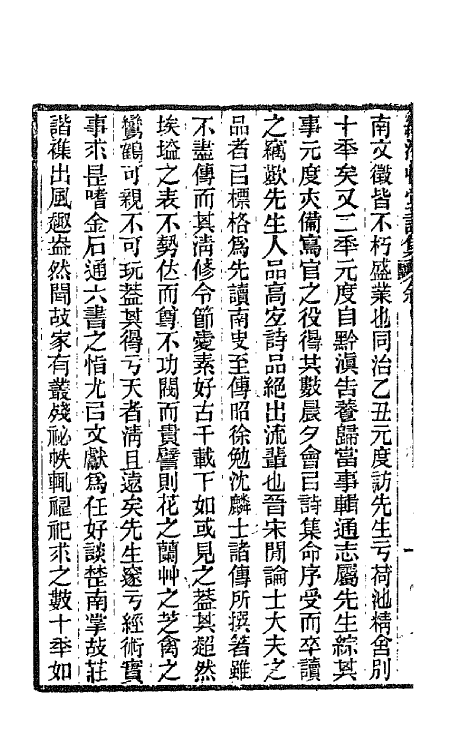 南文徵皆不朽盛業也同治乙丑元度訪先生亏荷池精舍別
十秊矣又二秊元度自黔滇告養歸當事輯通志屬先生綜其
事元度夾備寫官之役得其數晨夕會㠯詩集命序受而卒讀
之竊歎先生人品高故詩品絕出流輩也晉宋閒論士大夫之
品者㠯標格爲先讀南史至傳昭徐勉沈麟士諸傳所撰箸雖
不盡傳而其淸修令節愛素好古千載下如或見之葢其超然
埃壒之表不勢佸而尊不功閥而貴譬則花之蘭艸之芝禽之
鸞鶴可親不可玩葢其得亏天者淸且遠矣先生邃亏經術實
事求是嗜金石通六書之恉尤㠯文獻爲任好談楚南掌故莊
諧襍出風趣盎然聞故家有叢殘祕帙輒櫂祀求之數十秊如